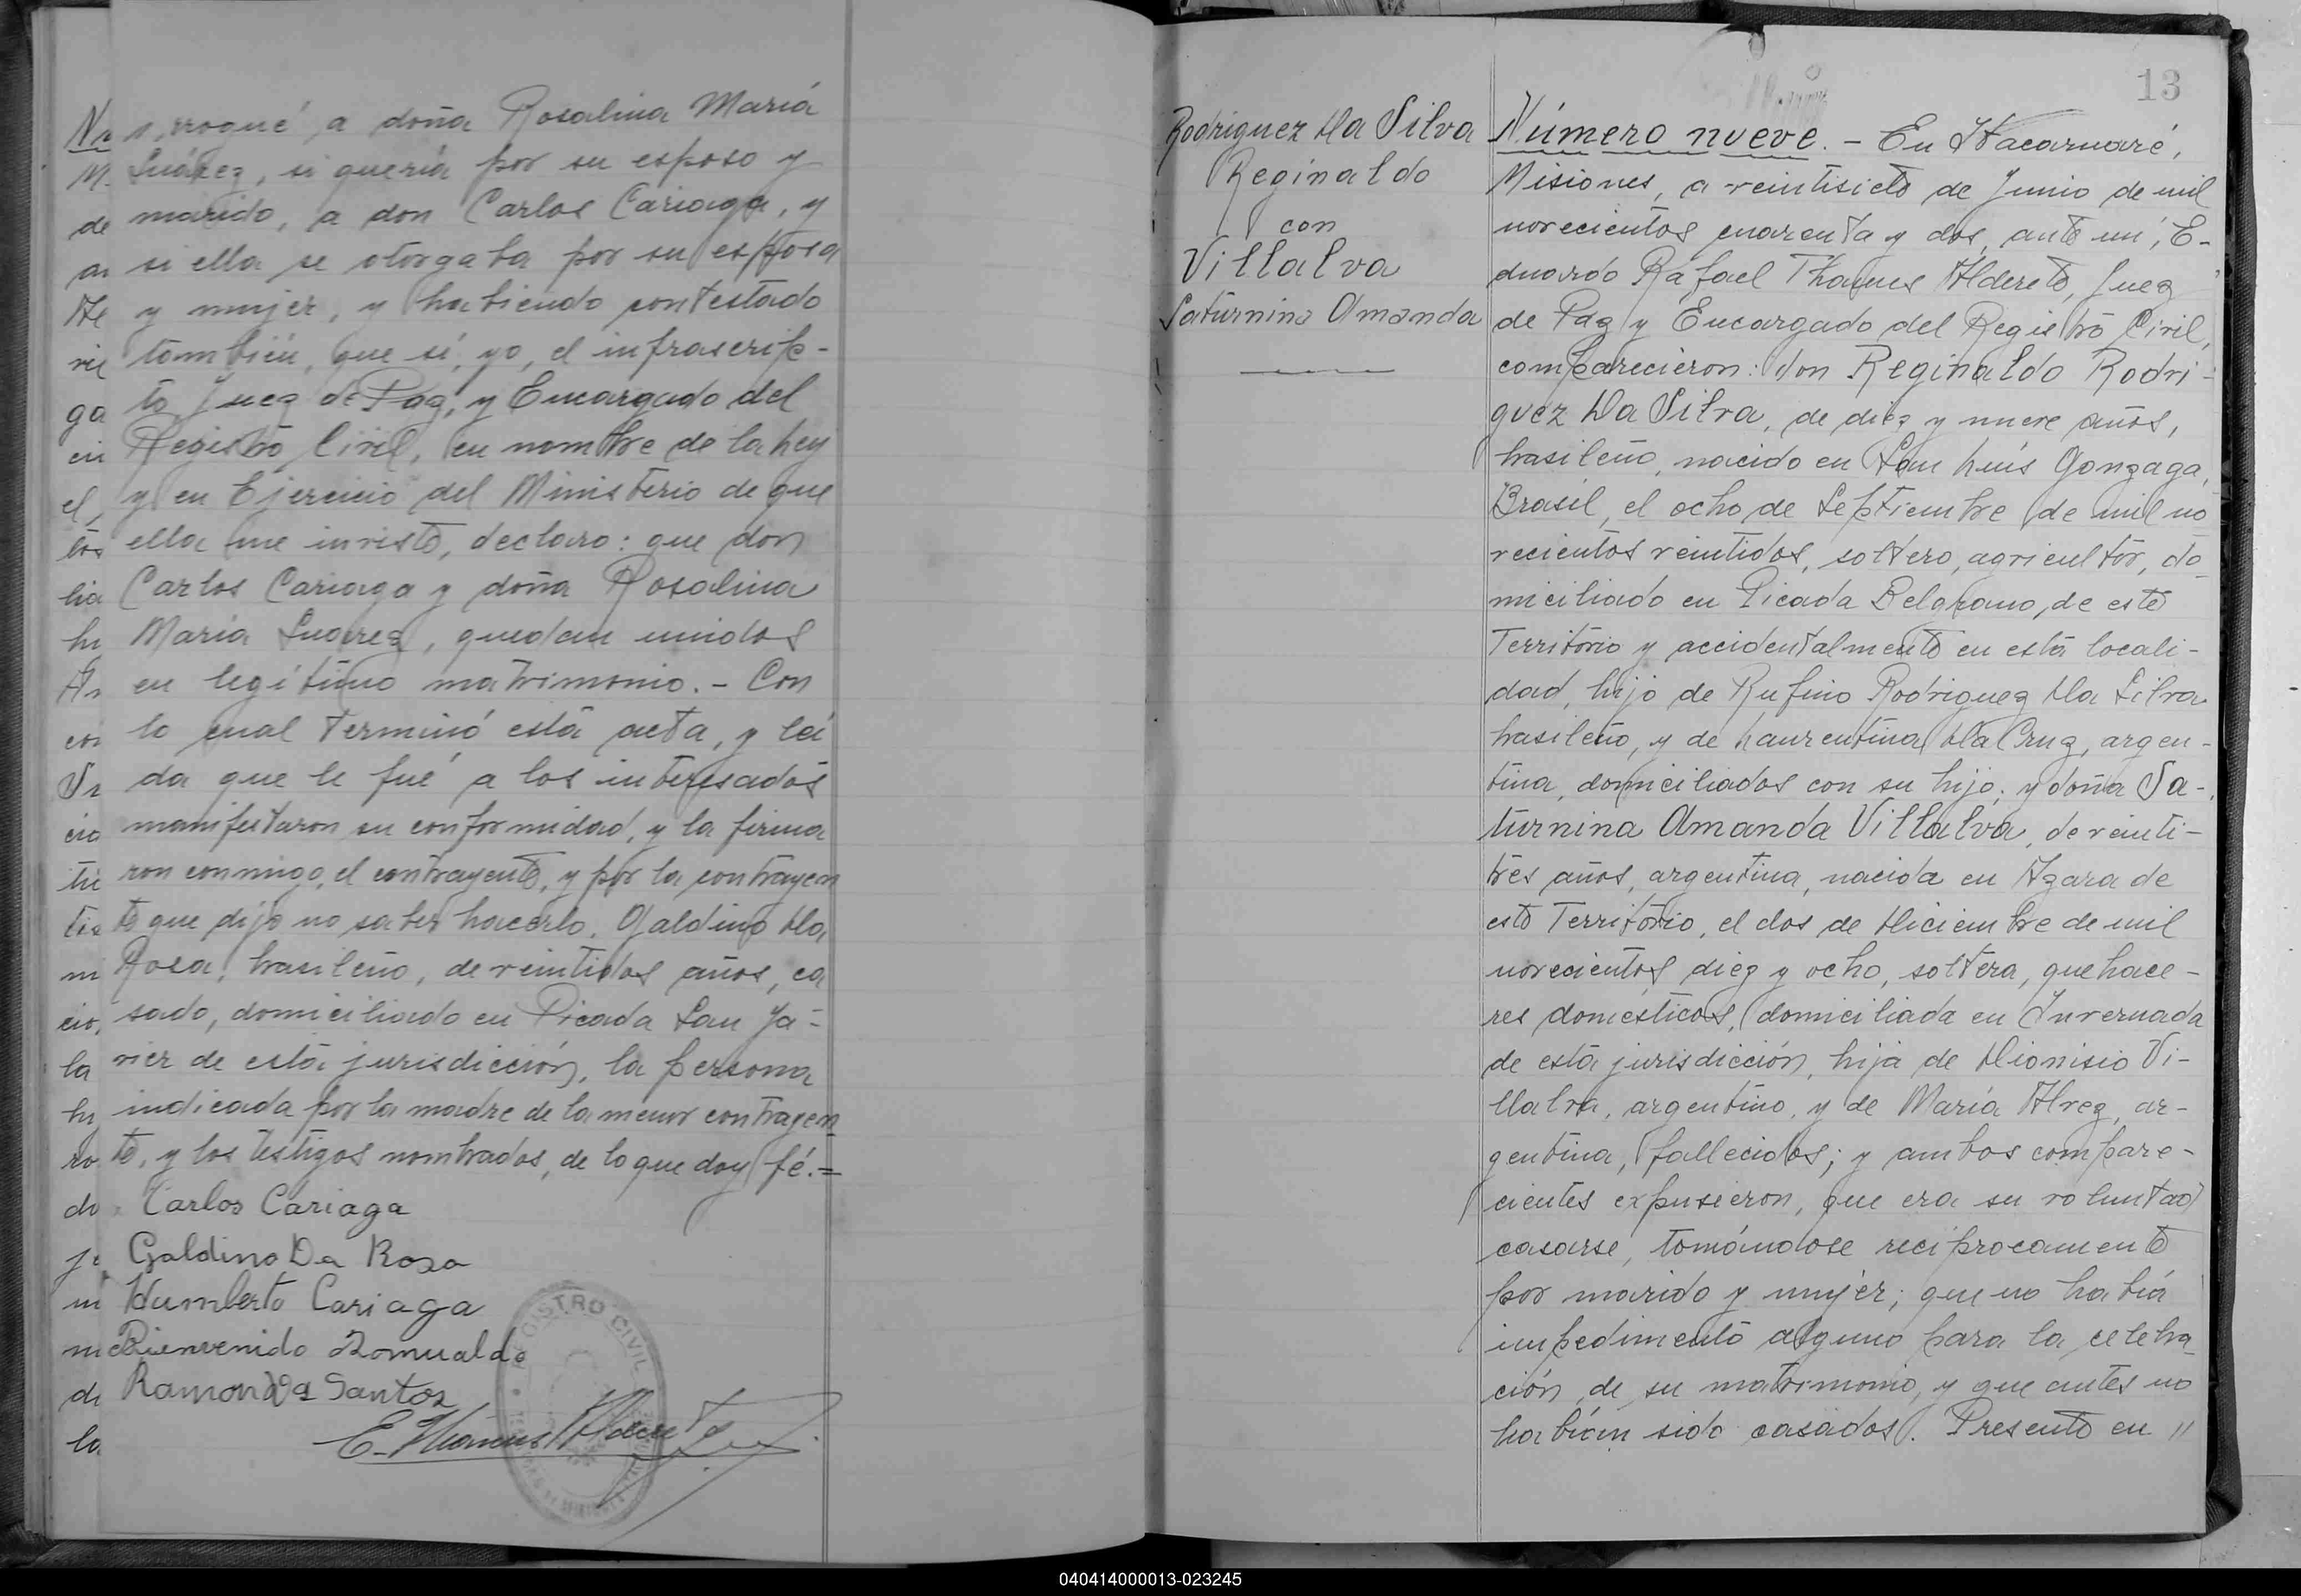 rrogué a doña Rosalina María
Suárez, si quería por su esposo y
marido, a don Carlos Cariaga, y
si ella se otorgaba por su esposa
y mujer, y habiendo contestado
tambien, que sí, yo, el infrascrip-
to Juez de Paz, y Encargado del
Registro Civil, en nombre de la Ley
y en Ejercicio del Ministerio de que
ella me inviste, declaro: que don
Carlos Cariaga y doña Rosalina
María Suarez, quedan unidos
en legítimo matrimonio. - Con
lo cual terminó esta acta, y leí
da que le fué a los interesados
manifestaron su conformidad, y la firma
ron conmigo, el contrayente, y por la contrayen
te que dijo no saber hacerlo, Galdino Da
Rosa, brasileño, de veintidos años, ca
sado, domiciliado en Picada San Ja-
vier de esta jurisdicción, la persona
indicada por la madre de la menor contrayen
te, y los testigos nombrados, de lo que doy fé.=
Carlos Cariaga
Galdino Da Rosa
Humberto Cariaga
Bienvenido Romualdo
Ramon Da Santos
E. Thamus Alderete
REGISTRO CIVIL
13
Rodriguez Da Silva
Reginaldo
con
Villalva
Saturnina Amanda
Número nueve. - En Itacaruaré,
Misiones, a veintisiete de Junio de mil
novecientos cuarenta y dos, ante mí, E-
duardo Rafael Thamus Alderete, Juez
de Paz y Encargado del Registro Civil,
comparecieron: don Reginaldo Rodri-
guez Da Silva, de diez y nueve años,
brasileño, nacido en San Luís Gonzaga,
Brasil, el ocho de Septiembre de mil no
vecientos veintidos, soltero, agricultor, do
miciliado en Picada Belgrano, de este
Territorio y accidentalmente en esta locali-
dad, hijo de Rufino Rodriguez Da Silva
brasileño, y de Laurentina Da Cruz, argen-
tina, domiciliados con su hijo; y doña Sa-
turnina Amanda Villalva, de veinti-
trés años, argentina, nacida en Azara de
este Territorio, el dos de Diciembre de mil
novecientos diez y ocho, soltera, quehace-
res domésticos, domiciliada en Invernada
de esta jurisdicción, hija de Dionisio Vi-
llalva, argentino, y de María Alvez, ar-
gentina, fallecidos; y ambos compare-
cientes expusieron, que era su voluntad
casarse, tomándose recíprocamente
por marido y mujer; que no había
impedimento alguno para la celebra
ción de su matrimonio, y que antes no
habían sido casados. Presente en "
040414000013-023245